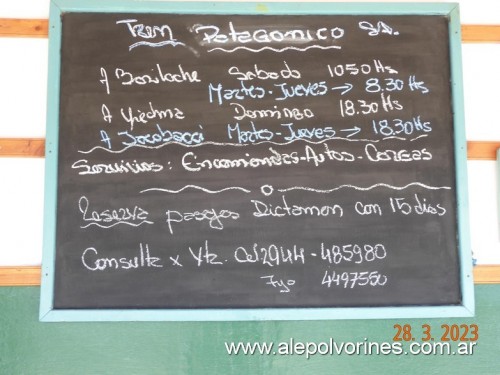 Tren Patagonico SA.
A Bariloche Sabado 1050 Hs
Martes - Jueves → 8.30 Hs
A Viedma Domingo 18.30 Hs
A Jacobacci Martes - Jueves → 18.30 Hs
Servicios: Encomiendas - Autos - Cargas
Reserva pasajes Dictamen con 15 dias
Consulta x Vtz. Cel 2944 - 485980
Fijo 4497550
28. 3. 2023
www.alepolvorines.com.ar